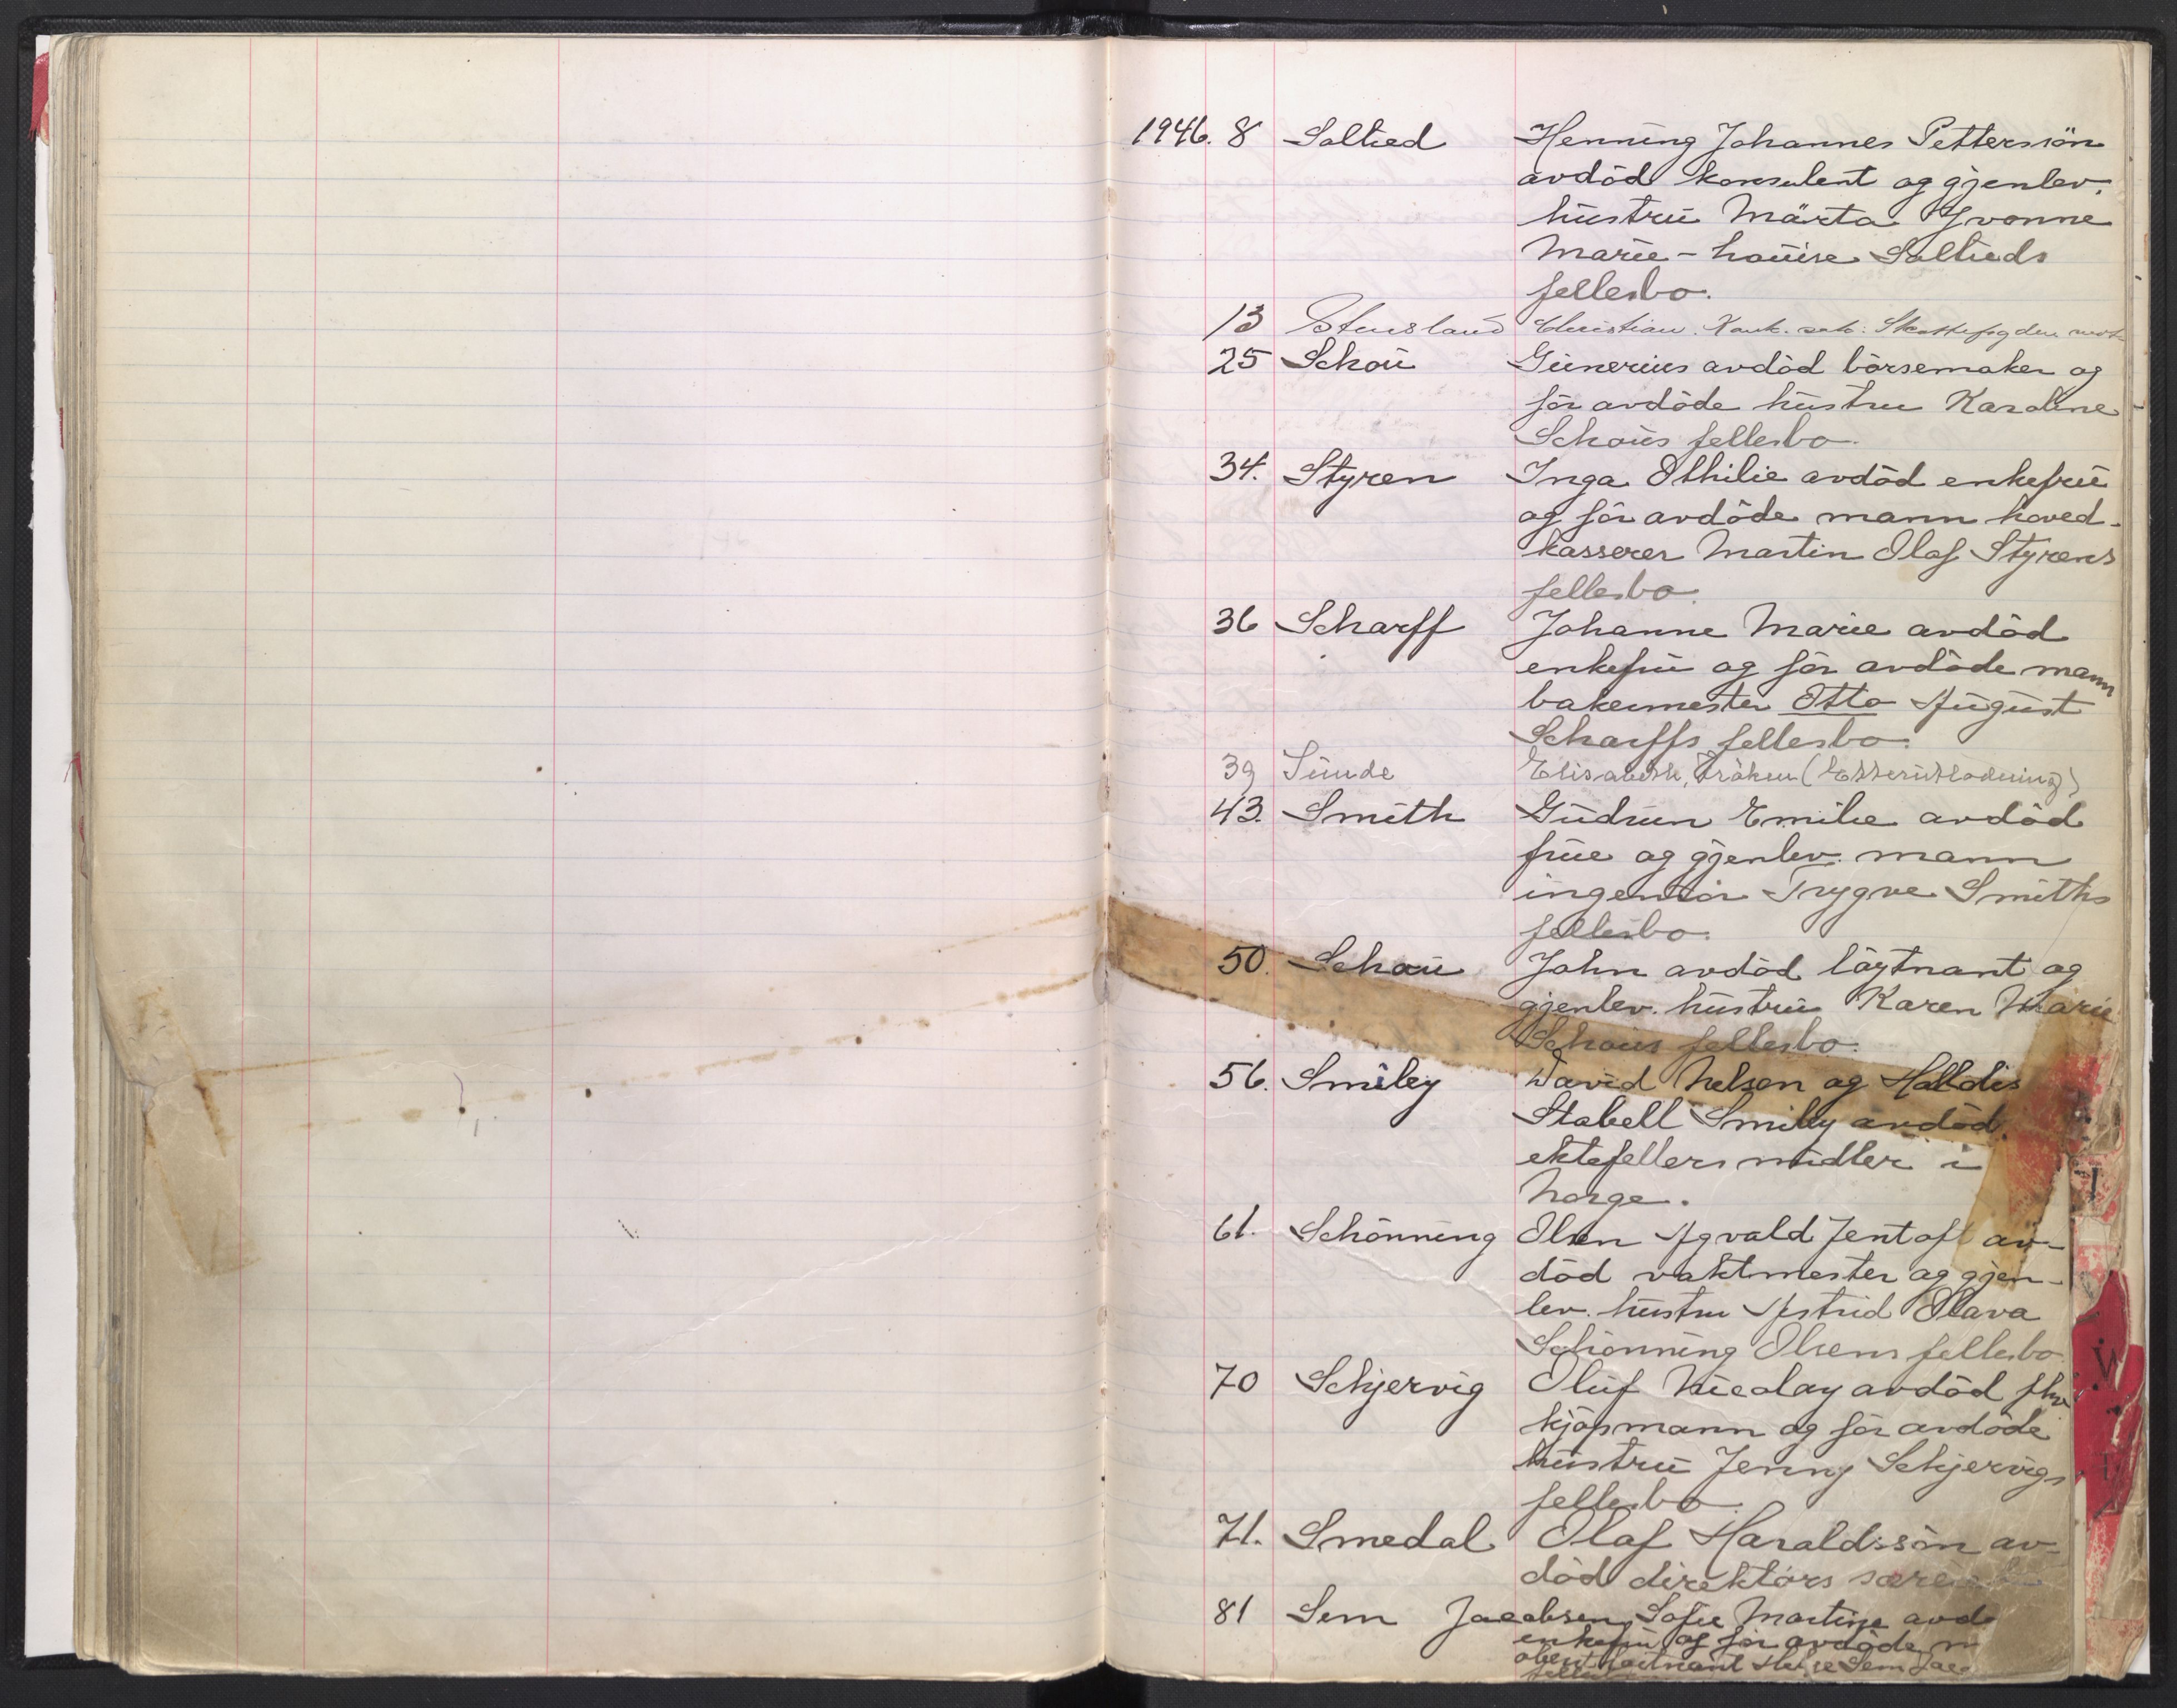 1946. 8 Saltied Henning Johannes Petterssön
avdöd konsulent og gjenlev.
hustru Märta Yvonne
Marie-Louise Saltieds
fellesbo.
13 Stensland Christian. Konk. sak: Skattefogden mot
25 Schou Gunerius avdöd börsemaker og
för avdöde hustru Karoline
Schous fellesbo.
34. Styren Inga Othilie avdöd enkefru
og för avdöde mann hoved-
kasserer Martin Olaf Styrens
fellesbo.
36 Scharff Johanne Marie avdöd
enkefru og för avdöde mann
bakermester Otto August
Scharffs fellesbo.
39 Sunde Elisabeth, Fröken (Etterutlodning)
43. Smith Gudrun Emilie avdöd
frue og gjenlev. mann
ingeniör Trygve Smiths
fellesbo.
50. Schou John avdöd löytnant og
gjenlev. hustru Karen Marie
Schous fellesbo.
56. Smiley David Nelson og Halldis
Stabell Smiley avdöd.
ektefellers midler i
Norge.
61. Schönning Olsen Agvald Jentoft av-
död vaktmester og gjen-
lev. hustru Astrid Olava
Schönning Olsens fellesbo
70 Schjervig Oluf Nicolay avdöd fhv.
kjöpmann og för avdöde
hustru Jenny Schjervigs
fellesbo.
71. Smedal Olaf Haraldssön av-
död direktörs
81 Sem Jacobsen, Sofie Martine avd
enkefru og för avdöde m
oberstlöitnant Sem Jac